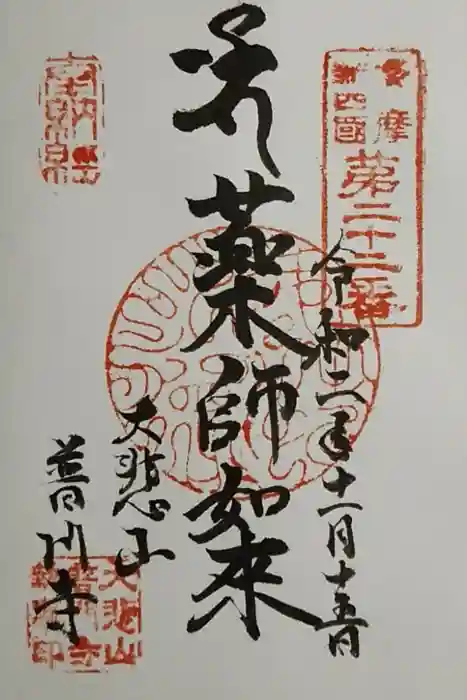 多摩
新四國
第二十二番
令和二年十一月十五日
奉 薬師如来
奉納經
大悲山
普門寺
大悲山
普門寺
納經印